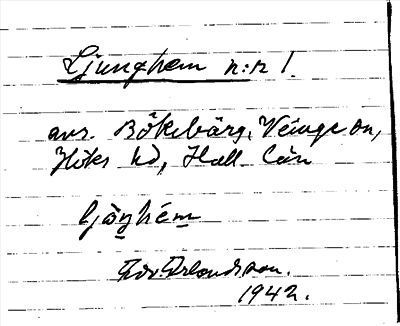 Ljunghem n:r 1.
avs. Bökebärg, Veinge sn,
Höks hd, Hall. län
ljȯŋhém
Edv. Erlandsson.
1942.